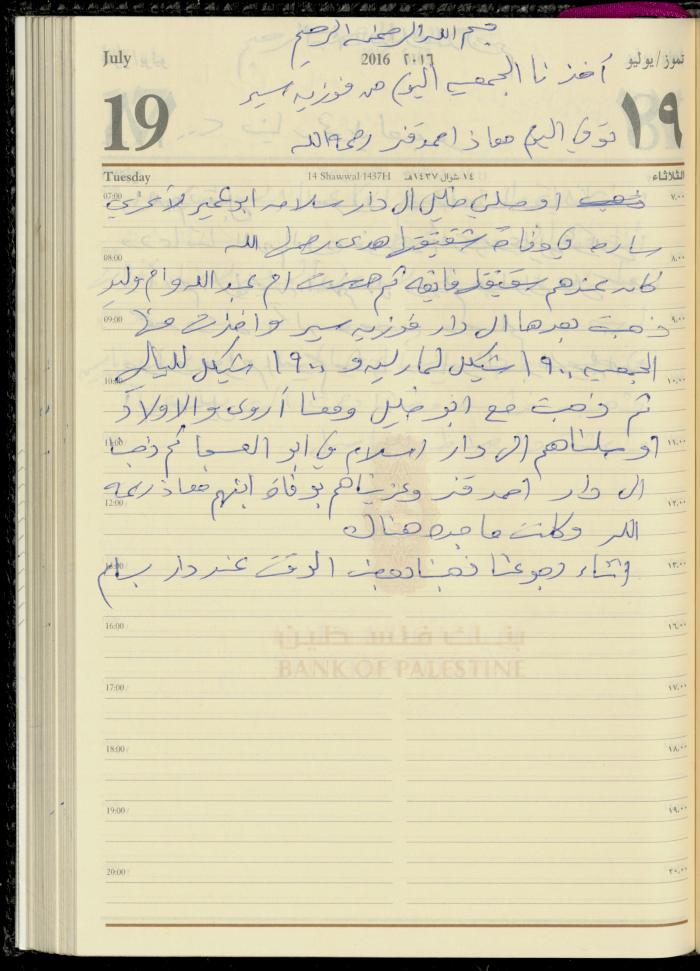 بسم الله الرحمن الرحيم
July 2016 ٢٠١٦ تموز / يوليو
أخذنا الجمعيه اليوم من فوزيه سير
19 ١٩
توفي اليوم معاذ احمد قنز رحمه الله
Tuesday 14 Shawwal 1437H ١٤ شوال ١٤٣٧هـ الثلاثاء
07:00 ذهبت اوصلني خليل ال دار سلامه ابو عمير لأعزي ٧,٠٠
ساره في وفاة شقيقتها هدى رحمها الله
08:00 ٨,٠٠
كانت عندهم شقيقتها فايقه ثم حضرت ام عبد الله وام وليد
09:00 ذهبت بعدها ال دار فوزيه سير واخذت منها ٩,٠٠
الجمعيه ١٩٠٠ شيكل لمارليه و ١٩٠٠ شيكل لليالي
10:00 ١٠,٠٠
ثم ذهبت مع ابو خليل ومعنا أروى والاولاد
11:00 اوصلناهم ال دار اسلام في ابو العسجا ثم ذهبنا ١١,٠٠
ال دار احمد قنز وعزيناهم بوفاة ابنهم معاذ رحمه
12:00 ١٢,٠٠
الله وكانت ماجده هناك
اثناء رجوعنا ذهبنا بعض الوقت عند دار بسام ١٣,٠٠
16:00 ١٦,٠٠
بنك فلسطين
BANK OF PALESTINE
17:00 ١٧,٠٠
18:00 ١٨,٠٠
19:00 ١٩,٠٠
20:00 ٢٠,٠٠